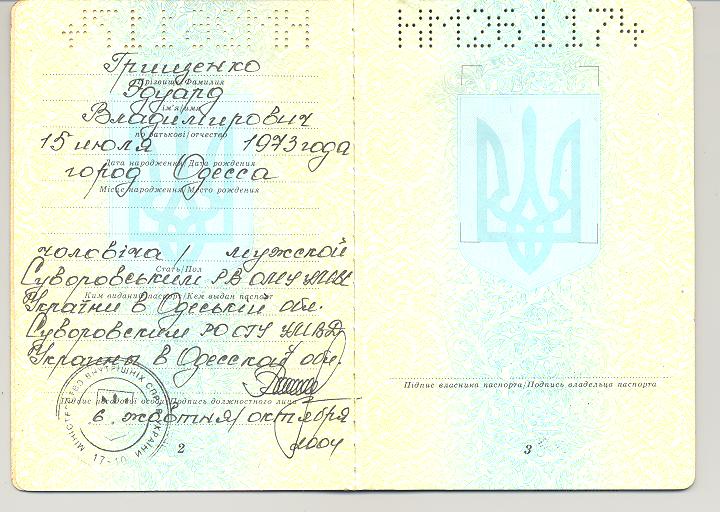 Грищенко
Прізвище/Фамилия
Эдуард
Ім'я/имя
Владимирович
по батькові/отчество
15 июля 1973 года
Дата народження/Дата рождения
город Одесса
Місце народження/Место рождения
чоловіча / мужской
Стать/Пол
Суворовським РВ ОМУ УМВС
Ким виданий паспорт/Кем выдан паспорт
України в Одеській обл.
Суворовским РО ОГУ УМВД
Украины в Одесской обл.
Підпис посадової особи/Подпись должностного лица
6. жовтня/октября
2004
МІНІСТЕРСТВО ВНУТРІШНІХ СПРАВ УКРАЇНИ
17-10
2
КМ261174
Підпис власника паспорта/Подпись владельца паспорта
3